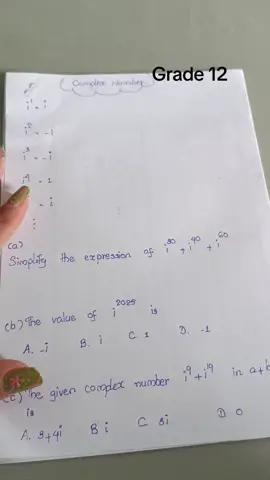 Grade 12
Complex Number
i¹ = i
i² = -1
i³ = -i
i⁴ = 1
= i
⋮
(a)
Simplify the expression of i³⁰ + i⁴⁰ + i⁶⁰
(b) The value of i²⁰²⁵ is
A. -i B. i C. 1 D. -1
(c) The given complex number i⁹ + i¹⁹ in a+b
is
A. 3+4i B i C 3i D 0